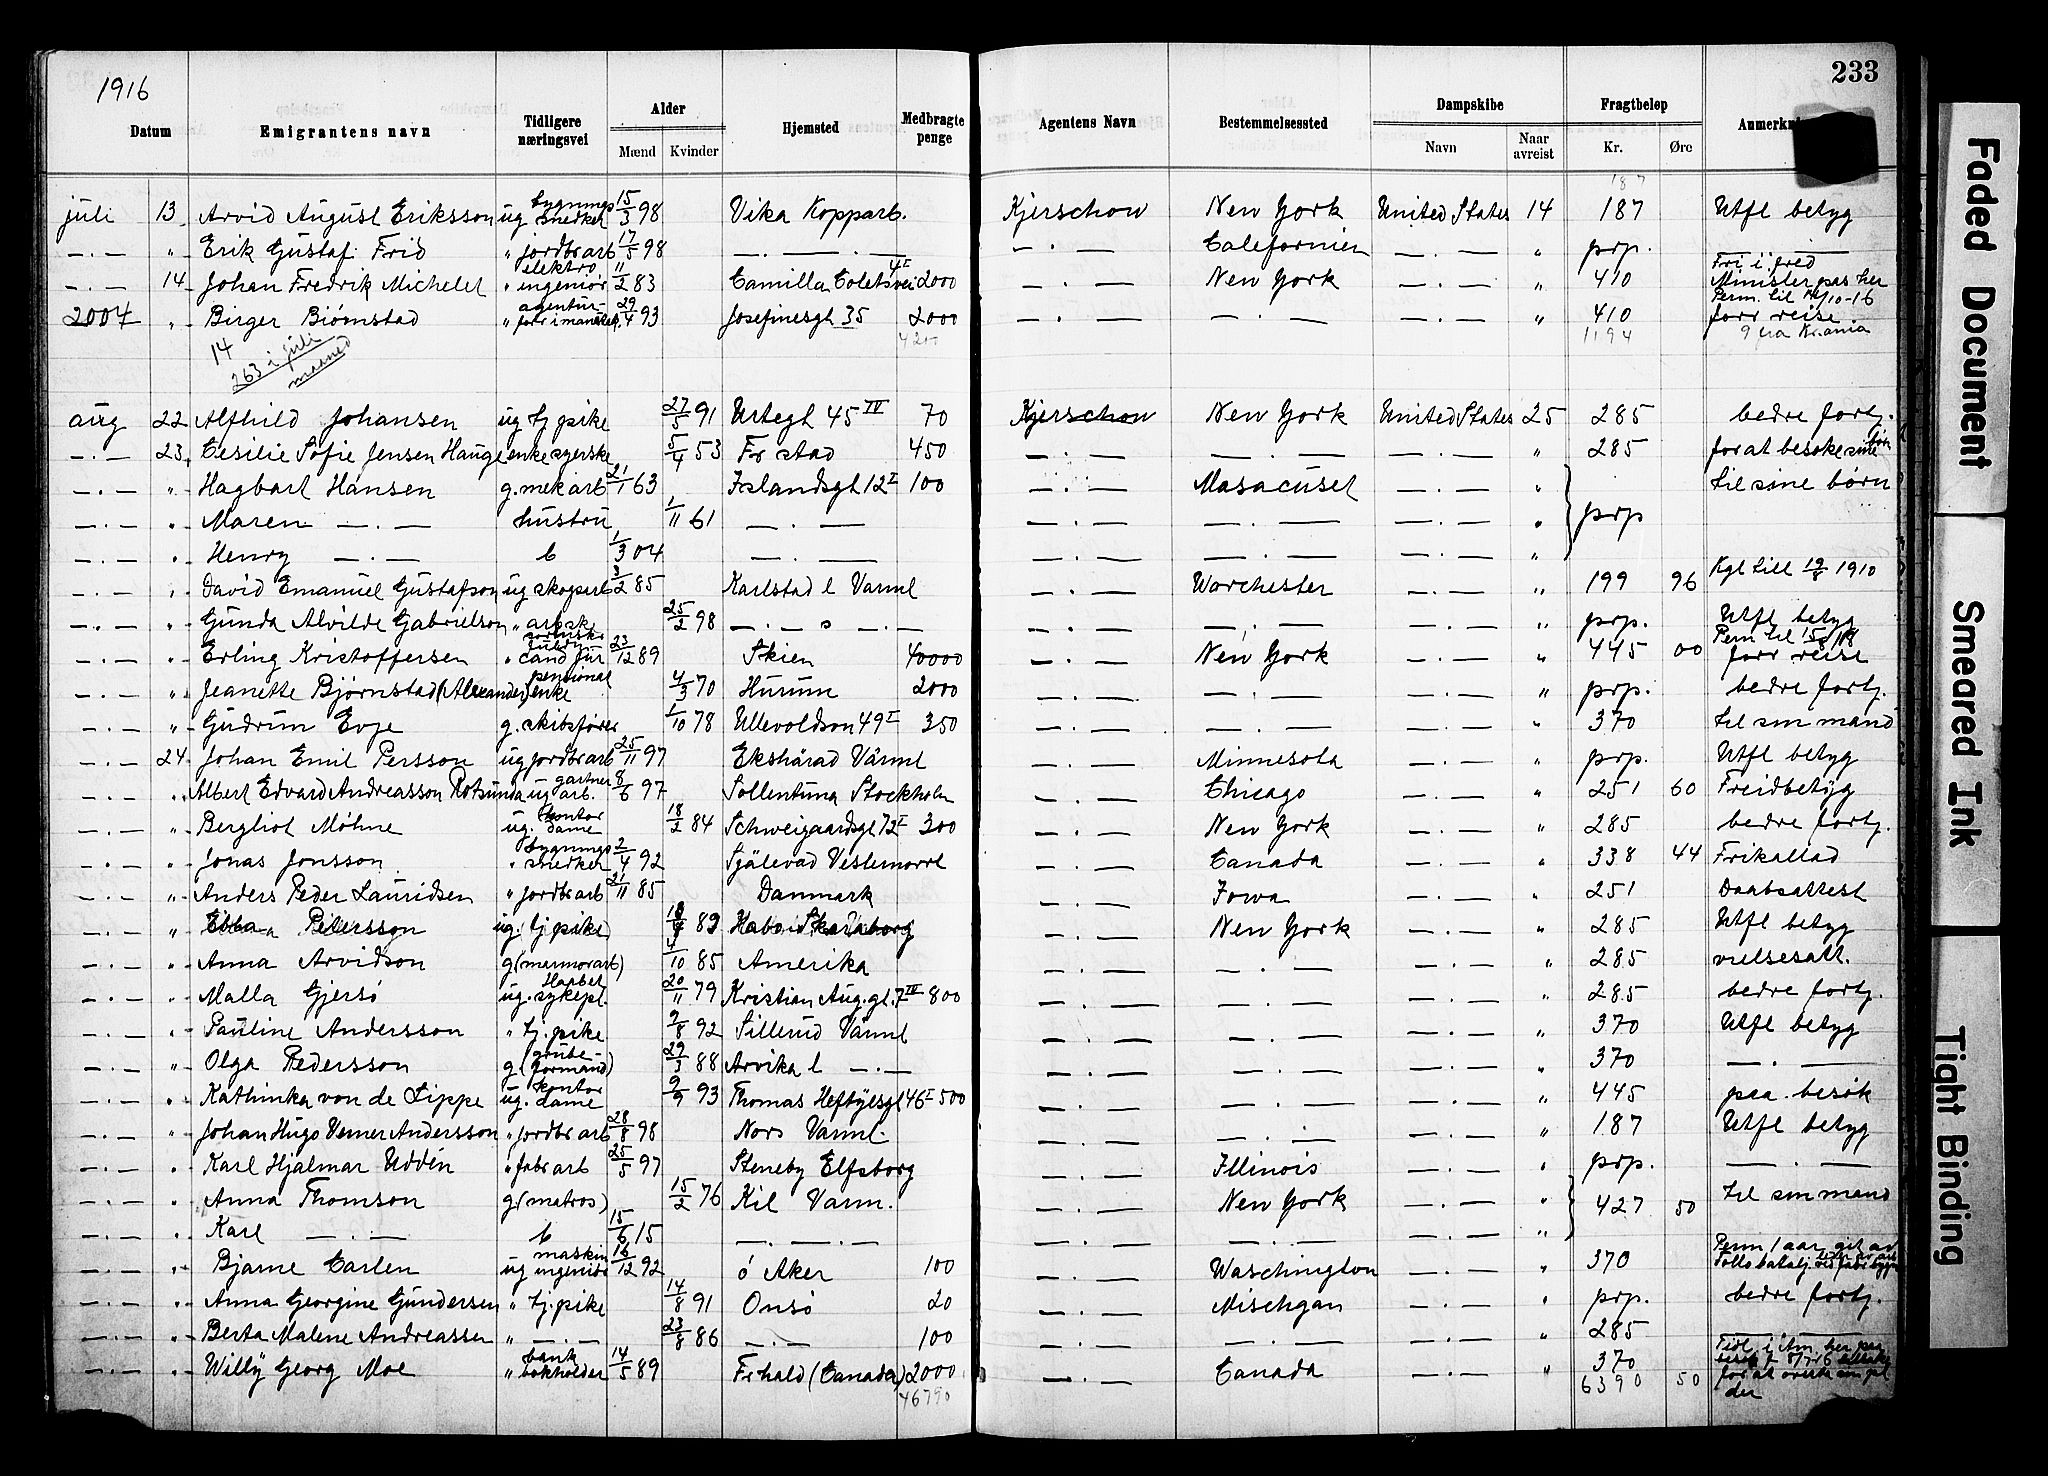 1916
233
Datum Emigrantens navn Tidligere næringsvei Alder Mænd Kvinder Hjemsted Medbragte penge Agentens Navn Bestemmelsessted Dampskibe Navn Naar avreist Fragtbeløp Kr. Øre
187
juli 13 Arvid August Eriksson ug bygnings snedker 15/3 98 Vika Kopparb. Kjerschow New York United States 14 187 Utfl betyg
— . — " Erik Gustaf Frid " jordbrarb 17/5 98 — . — . — — . — Californien — . — " prp.
— . — 14 Johan Fredrik Michelet " elektro ingeniør 11/2 83 Camilla Coletsvei 4 I 2000 — . — New York — . — " 410 Fri i fred Minister pas her
2004 " Birger Biørnstad " agentur- 29/4 93 Josefinesgt 35 2000 — . — — . — — . — " 410 Perm. til 14/10-16 forr reise
14 4200 1194 9 fra Kr.ania
263 i juli maaned
aug 22 Alfhild Johansen ug tj pike 27/5 91 Urtegt 45 IV 70 Kjerschow New York United States 25 285 bedre fortj.
— . — 23 Cesilie Sofie Jensen Hauge enke syerske 5/4 53 Fr stad 450 — . — — . — — . — " 285 for at besøke sine børn
— . — " Hagbart Hansen g. mek arb 2/1 63 Islandsgt 12 I 100 — . — Masacuset — . — " til sine børn
— . — " Maren — . — hustru 1/11 61 — . — — . — — . — — . — " prp
— . — " Henry — . — b 1/3 04 — . — — . — — . — — . — "
— . — " David Emanuel Gustafson ug skogarb 3/2 85 Karlstad l Varml — . — Worchester — . — " 199 96 Kgl till 19/8 1910
— . — " Gunda Alvilde Gabrielson " arbske 25/2 98 — . — s — . — — . — — . — — . — " prp. Utfl betyg
— . — " Erling Kristoffersen " cand jur 23/12 89 Skien 40000 — . — New York — . — " 445 00 Perm til forr reise
— . — " Jeanette Bjørnstad (Alexander) pensional enke 4/3 70 Hurum 2000 — . — — . — — . — " prp. bedre fortj.
— . — " Gudrun Evje g. skibsfører 1/10 78 Ullevoldson 49 I 350 — . — — . — — . — " 370 til sin mand
— . — 24 Johan Emil Persson ug jordbrarb 25/11 97 Ekshärad Värml — . — Minnesota — . — " prp. Utfl betyg
— . — " Albert Edvard Andreasson Rotsunda ug gartner arb. 8/6 97 Sollentuna Stockholm — . — Chicago — . — " 251 60 Freidbetyg
— . — " Bergliot Møhne ug. kontor dame 18/2 84 Schweigaardsgt 72 I 300 — . — New York — . — " 285 bedre fortj.
— . — " Jonas Jonsson " bygnings snedker 2/4 92 Själevad Vesternorrl — . — Canada — . — " 338 44 Frikallad
— . — " Anders Peder Lauridsen " jordbrarb 21/11 85 Danmark — . — Iowa — . — " 251 Daabsattest
— . — " Ebba Petersson ug. (tj. pike) 89 Habo Skaraborg — . — New York — . — " 285 Utfl betyg
— . — " Anna Arvidson g (marmorarb) 4/10 85 Amerika — . — — . — — . — " 285 vielsesatt.
— . — " Malla Gjersø ug. sykepl. 20/11 79 Kristian Aug. gt. 7 IV 800 — . — — . — — . — " 285 bedre fortj.
— . — " Pauline Andersson " tj. pike 9/8 92 Sillerud Värml — . — — . — — . — " 370 Utfl betyg
— . — " Olga Pedersson g (grube- formand) 29/3 88 Arvika l — . — — . — — . — — . — " 370 — . —
— . — " Kathinka von de Lippe ug. kontor dame 9/9 93 Thomas Heftyesgt 46 I 500 — . — — . — — . — " 445 paa besøk
— . — " Johan Hugo Verner Andersson " jordbrarb 28/8 98 Nors Varml. — . — — . — — . — " 187 Utfl betyg
— . — " Karl Hjalmar Uddén " fabrarb 25/5 97 Steneby Elfsborg — . — Illinois — . — " prp. — . —
— . — " Anna Thomson g (matros) 15/2 76 Kil Varm. — . — New York — . — " 427 50 til sin mand
— . — " Karl — . — b 15/6 15 — . — . — — . — — . — — . — "
— . — " Bjarne Carlen ug maskin ingeniør 16/12 92 ø Aker 100 — . — Waschington — . — " 370 Perm 1 aar
— . — " Anna Georgine Gundersen " tj. pike 14/8 91 Onsø 20 — . — Mischgan — . — " prp. bedre fortj.
— . — " Berta Malene Andreassen " — . — 23/8 86 — . — 100 — . — — . — — . — " 285
— . — " Willy Georg Moe " bank bokholder 14/5 89 Frhald (Canada) 2000 — . — Canada — . — " 370
46790 6390 50
Faded Document
Smeared Ink
Tight Binding